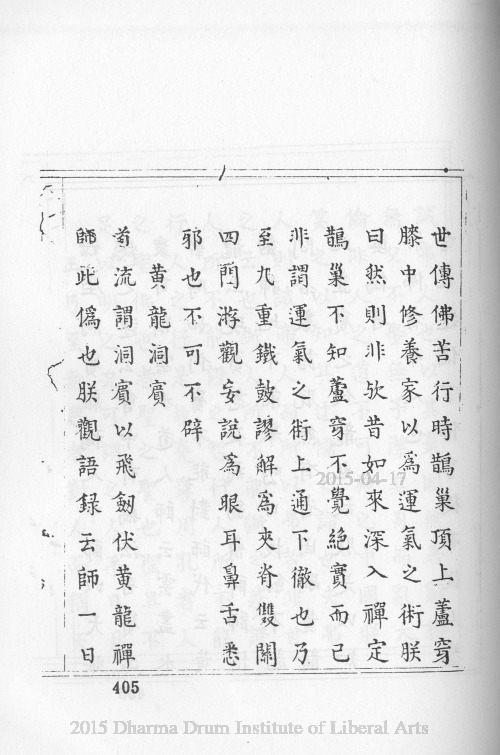 世傳佛苦行時鵲巢頂上蘆穿
膝中修養家以爲運氣之術朕
曰然則非欤昔如來深入禪定
鵲巢不知蘆穿不覺絕實而已
非謂運氣之術上通下徹也乃
至九重鐵鼓謬解爲夾脊雙關
四門游觀妄說爲眼耳鼻舌悉
邪也不可不辟
黄龍洞賔
道流謂洞賔以飛劒伏黄龍禪
師此僞也朕觀語録云師一日
405
2015-04-17
2015 Dharma Drum Institute of Liberal Arts